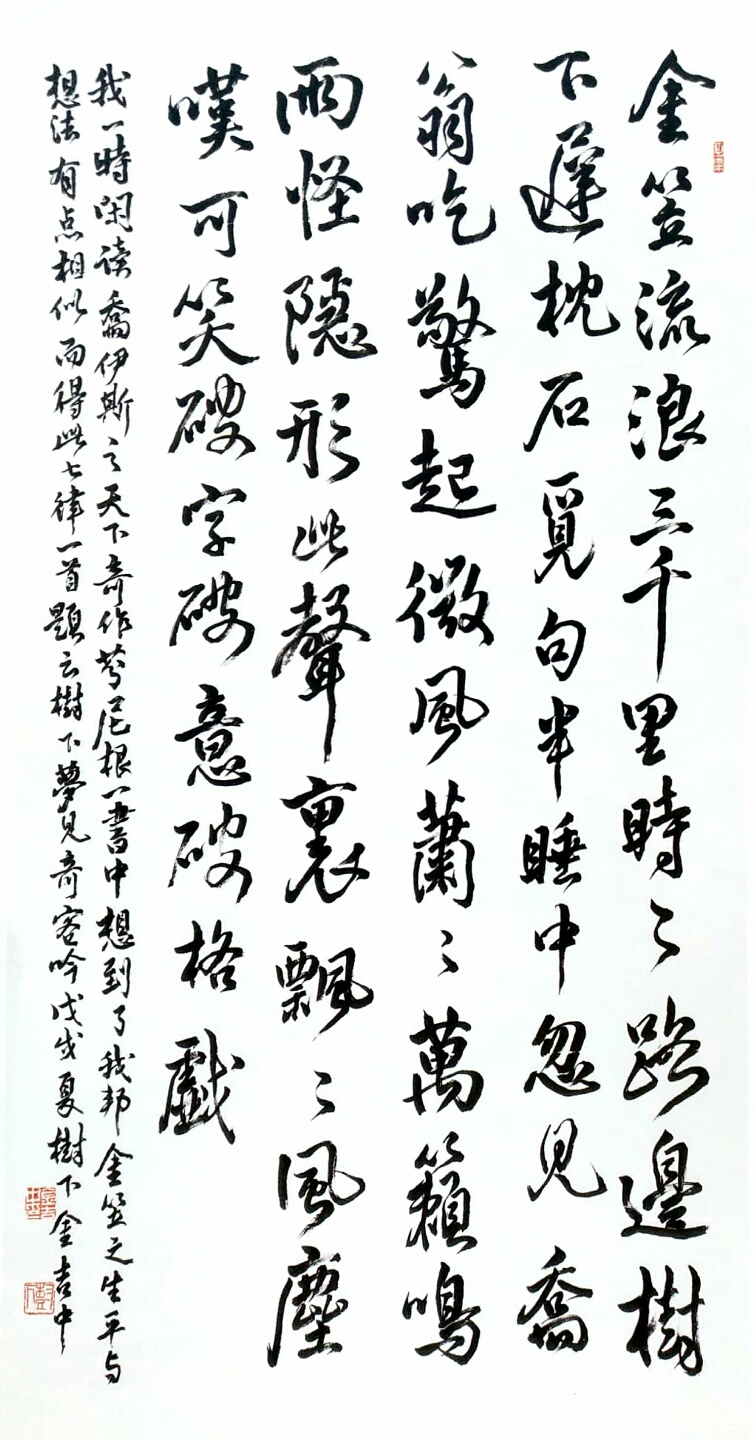 金笠流浪三千里時々路邊樹
下遲枕石覓句半睡中忽見喬
翁吃驚起微風蕭々萬籟鳴
兩怪隱形此聲裏飄々風塵
嘆可笑破字破意破格戲
我一時閑读喬伊斯之天下奇作芬尼根一書中想到了我邦金笠之生平与
想法有点相似而得此七律一首題云樹下夢見奇客吟戊戌夏樹下金吉中